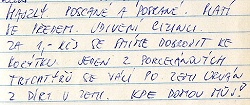 MANŽLY POSCANÉ A POSRANÉ. PLATÍ
SE PŘEDEM. UDIVENÍ CIZINCI.
ZA 1,- KČS SE SMÍME DOBROVIT KE
KOČÍRKU. JEDEN Z PORCELÁNOVÝCH
TRICHTÝŘŮ SE VÁLÍ PO ZEMI URVÁN
Z DÍRY V ZEMI. KDE DOMOV MŮJ?